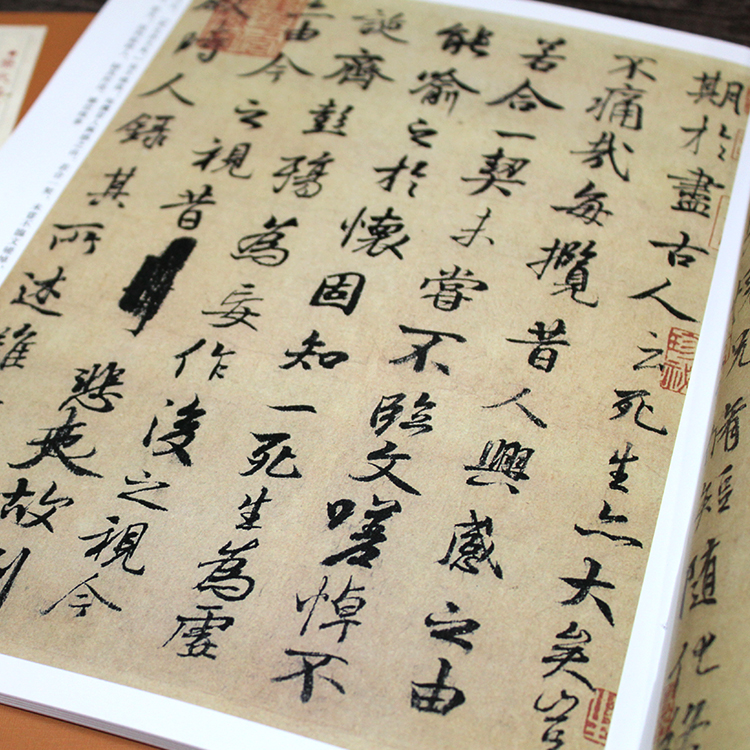 況脩短隨化終
期於盡古人云死生亦大矣豈
不痛哉每攬昔人興感之由
若合一契未嘗不臨文嗟悼不
能喻之於懷固知一死生為虛
誕齊彭殤為妄作後之視今
由今之視昔悲夫故列
時人錄其所述雖